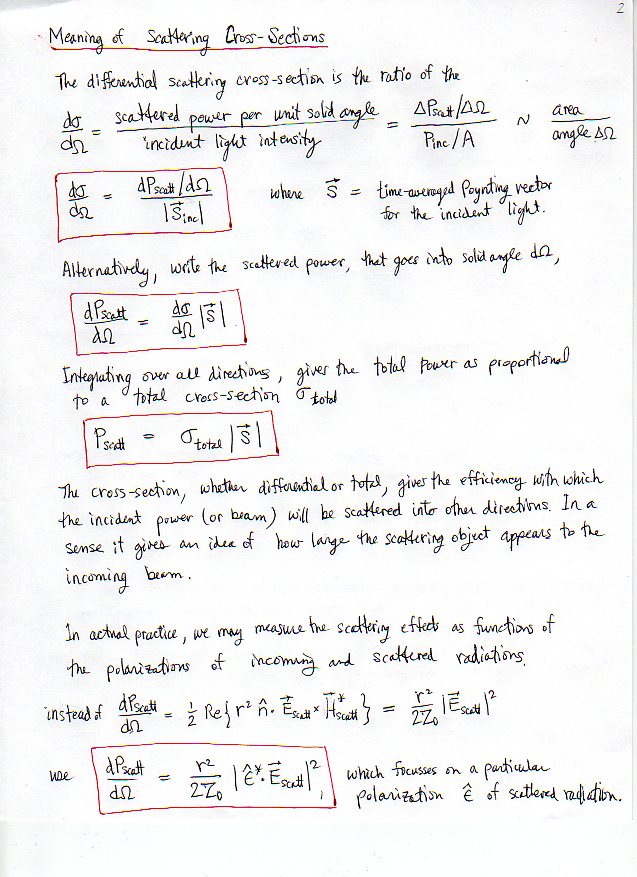 2
Meaning of Scattering Cross-Sections
The differential scattering cross-section is the ratio of the
dσ/dΩ = scattered power per unit solid angle / incident light intensity = ΔPscatt/ΔΩ / Pinc/A ~ area / angle ΔΩ
dσ/dΩ = dPscatt/dΩ / |S⃗inc| where S⃗ = time-averaged Poynting vector
for the incident light.
Alternatively, write the scattered power, that goes into solid angle dΩ,
dPscatt/dΩ = dσ/dΩ |S⃗|
Integrating over all directions, gives the total power as proportional
to a total cross-section σtotal
Pscatt = σtotal |S⃗|
The cross-section, whether differential or total, gives the efficiency with which
the incident power (or beam) will be scattered into other directions. In a
sense it gives an idea of how large the scattering object appears to the
incoming beam.
In actual practice, we may measure the scattering effects as functions of
the polarizations of incoming and scattered radiations.
instead of dPscatt/dΩ = 1/2 Re{r² n̂ · E⃗scatt × H⃗*scatt} = r²/2Z₀ |E⃗scatt|²
use dPscatt/dΩ = r²/2Z₀ |ε̂* · E⃗scatt|², which focusses on a particular
polarization ε̂ of scattered radiation.